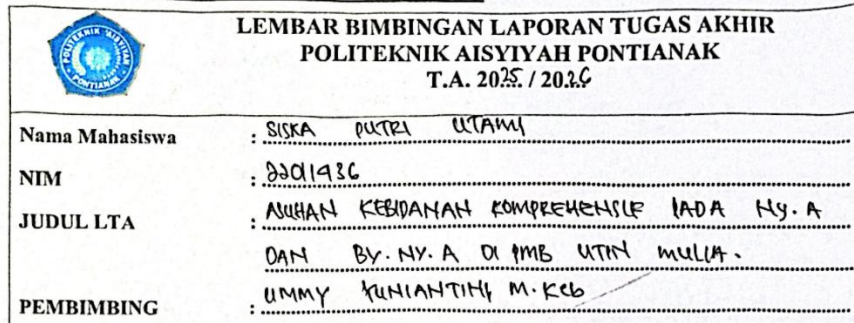 LEMBAR BIMBINGAN LAPORAN TUGAS AKHIR
POLITEKNIK AISYIYAH PONTIANAK
T.A. 2025 / 2026
Nama Mahasiswa : SISKA PUTRI UTAMI
NIM : 2201436
JUDUL LTA : ASUHAN KEBIDANAN KOMPREHENSIF PADA Ny. A
DAN BY. NY. A DI PMB UTIN MULIA.
PEMBIMBING : UMMY YUNIANTINI, M.Keb